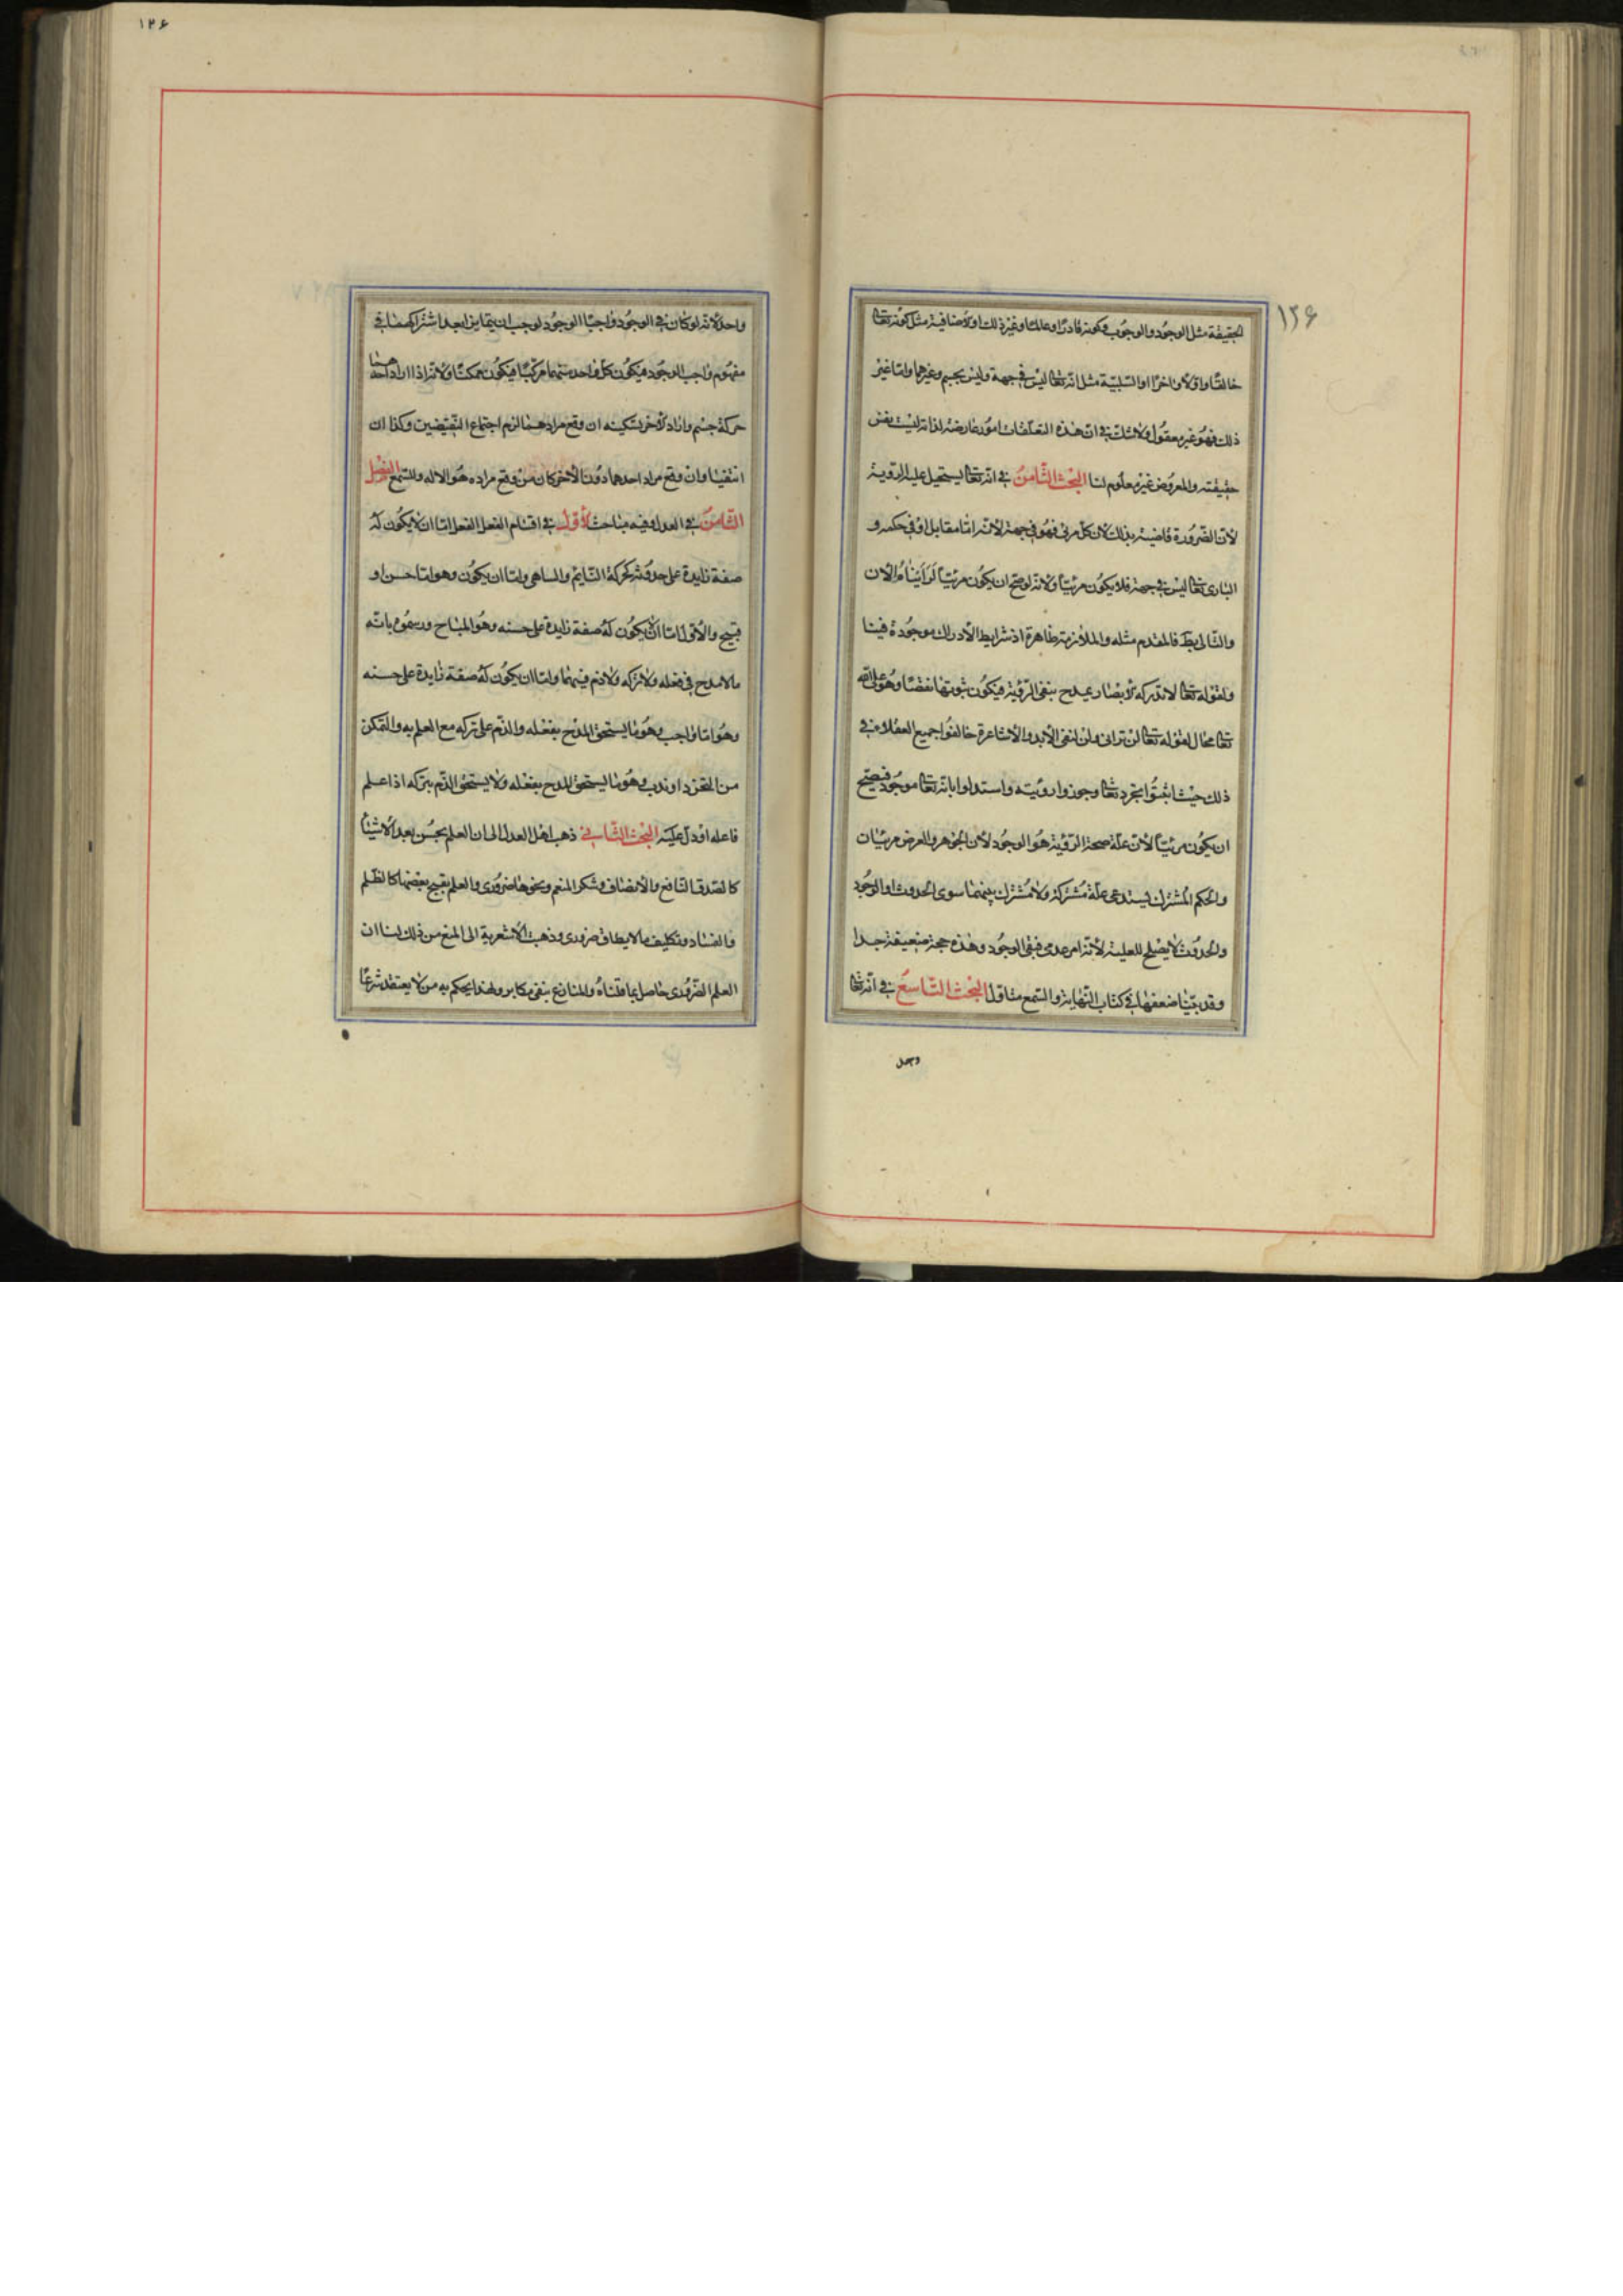 ١٢۶
الحقيقة مثل الوجود والوجوب وكونه قادرا وعالما وغير ذلك او الاضافية مثل كونه تعالى
خالقا واولا واخرا او السلبية مثل انه تعالى ليس في جهة وليس بجسم وغيرهما واما غير
ذلك فهو غير معقول ولا شك في ان هذه التعلقات امور عارضة لذاته ليست نفس
حقيقته والمعروض غير معلوم لنا البحث الثامن في انه تعالى يستحيل عليه الروية
لان الضرورة قاضية بذلك لان كل مرئي فهو في جهة لانه اما مقابل او في حكمه و
البارى تعالى ليس في جهة فلا يكون مرئيا ولانه لو صح ان يكون مرئيا لرأيناه الان
والتالى بط فالمقدم مثله والملازمة ظاهرة اذ شرايط الادراك موجودة فينا
ولقوله تعالى لا تدركه الابصار يمدح بنفى الرؤية فيكون ثبوتها نقصا وهو على الله
تعالى محال لقوله تعالى لن ترانى ولن لنفى الابد والاشاعرة خالفوا جميع العقلاء في
ذلك حيث اثبتوا تجرده تعالى وجوزوا رؤيته واستدلوا بانه تعالى موجود فيصح
ان يكون مرئيا لان علة صحة الرؤية هو الوجود لان الجوهر والعرض مرئيان
والحكم المشترك يستدعى علة مشتركة ولا مشترك بينهما سوى الحدوث او الوجود
والحدوث لا يصلح للعلية لانه امر عدمى فبقى الوجود وهذه حجة ضعيفة جدا
وقد بينا ضعفها في كتاب النهاية والسمع متاول البحث التاسع في انه تعالى
١٢۶
واحد لانه لو كان في الوجود واجبا الوجود لوجب ان يتمايزا بعد اشتراكهما في
مفهوم واجب الوجود فيكون كل واحد منهما مركبا فيكون ممكنا ولانه اذا اراد احدهما
حركة جسم واراد الاخر تسكينه ان وقع مرادهما لزم اجتماع النقيضين وكذا ان
انتفيا وان وقع مراد احدهما دون الاخر كان من وقع مراده هو الاله وللسمع الفصل
الثامن في العدل وفيه مباحث الاول في اقسام الفعل الفعل اما ان لا يكون له
صفة زايدة على حدوثه كحركة النايم والساهى واما ان يكون وهو اما حسن او
قبيح والاول اما ان لا يكون له صفة زايدة على حسنه وهو المباح ورسموه بانه
ما لا مدح في فعله ولا تركه ولا ذم فيهما واما ان يكون له صفة زايدة على حسنه
وهو اما واجب وهو ما يستحق المدح بفعله والذم على تركه مع العلم به والتمكن
من التحرز او ندب وهو ما يستحق المدح بفعله ولا يستحق الذم بتركه اذا علم
فاعله او دل عليه البحث الثانى ذهب اهل العدل الى ان العلم بحسن بعض الاشياء
كالصدق النافع والانصاف وشكر المنعم ونحوها ضرورى والعلم بقبح بعضها كالظلم
والفساد وتكليف ما لا يطاق ضرورى وذهبت الاشعرية الى المنع من ذلك لنا ان
العلم الضرورى حاصل بما قلناه والمنازع فيه مكابر ولهذا يحكم به من لا يعتقد شرعا